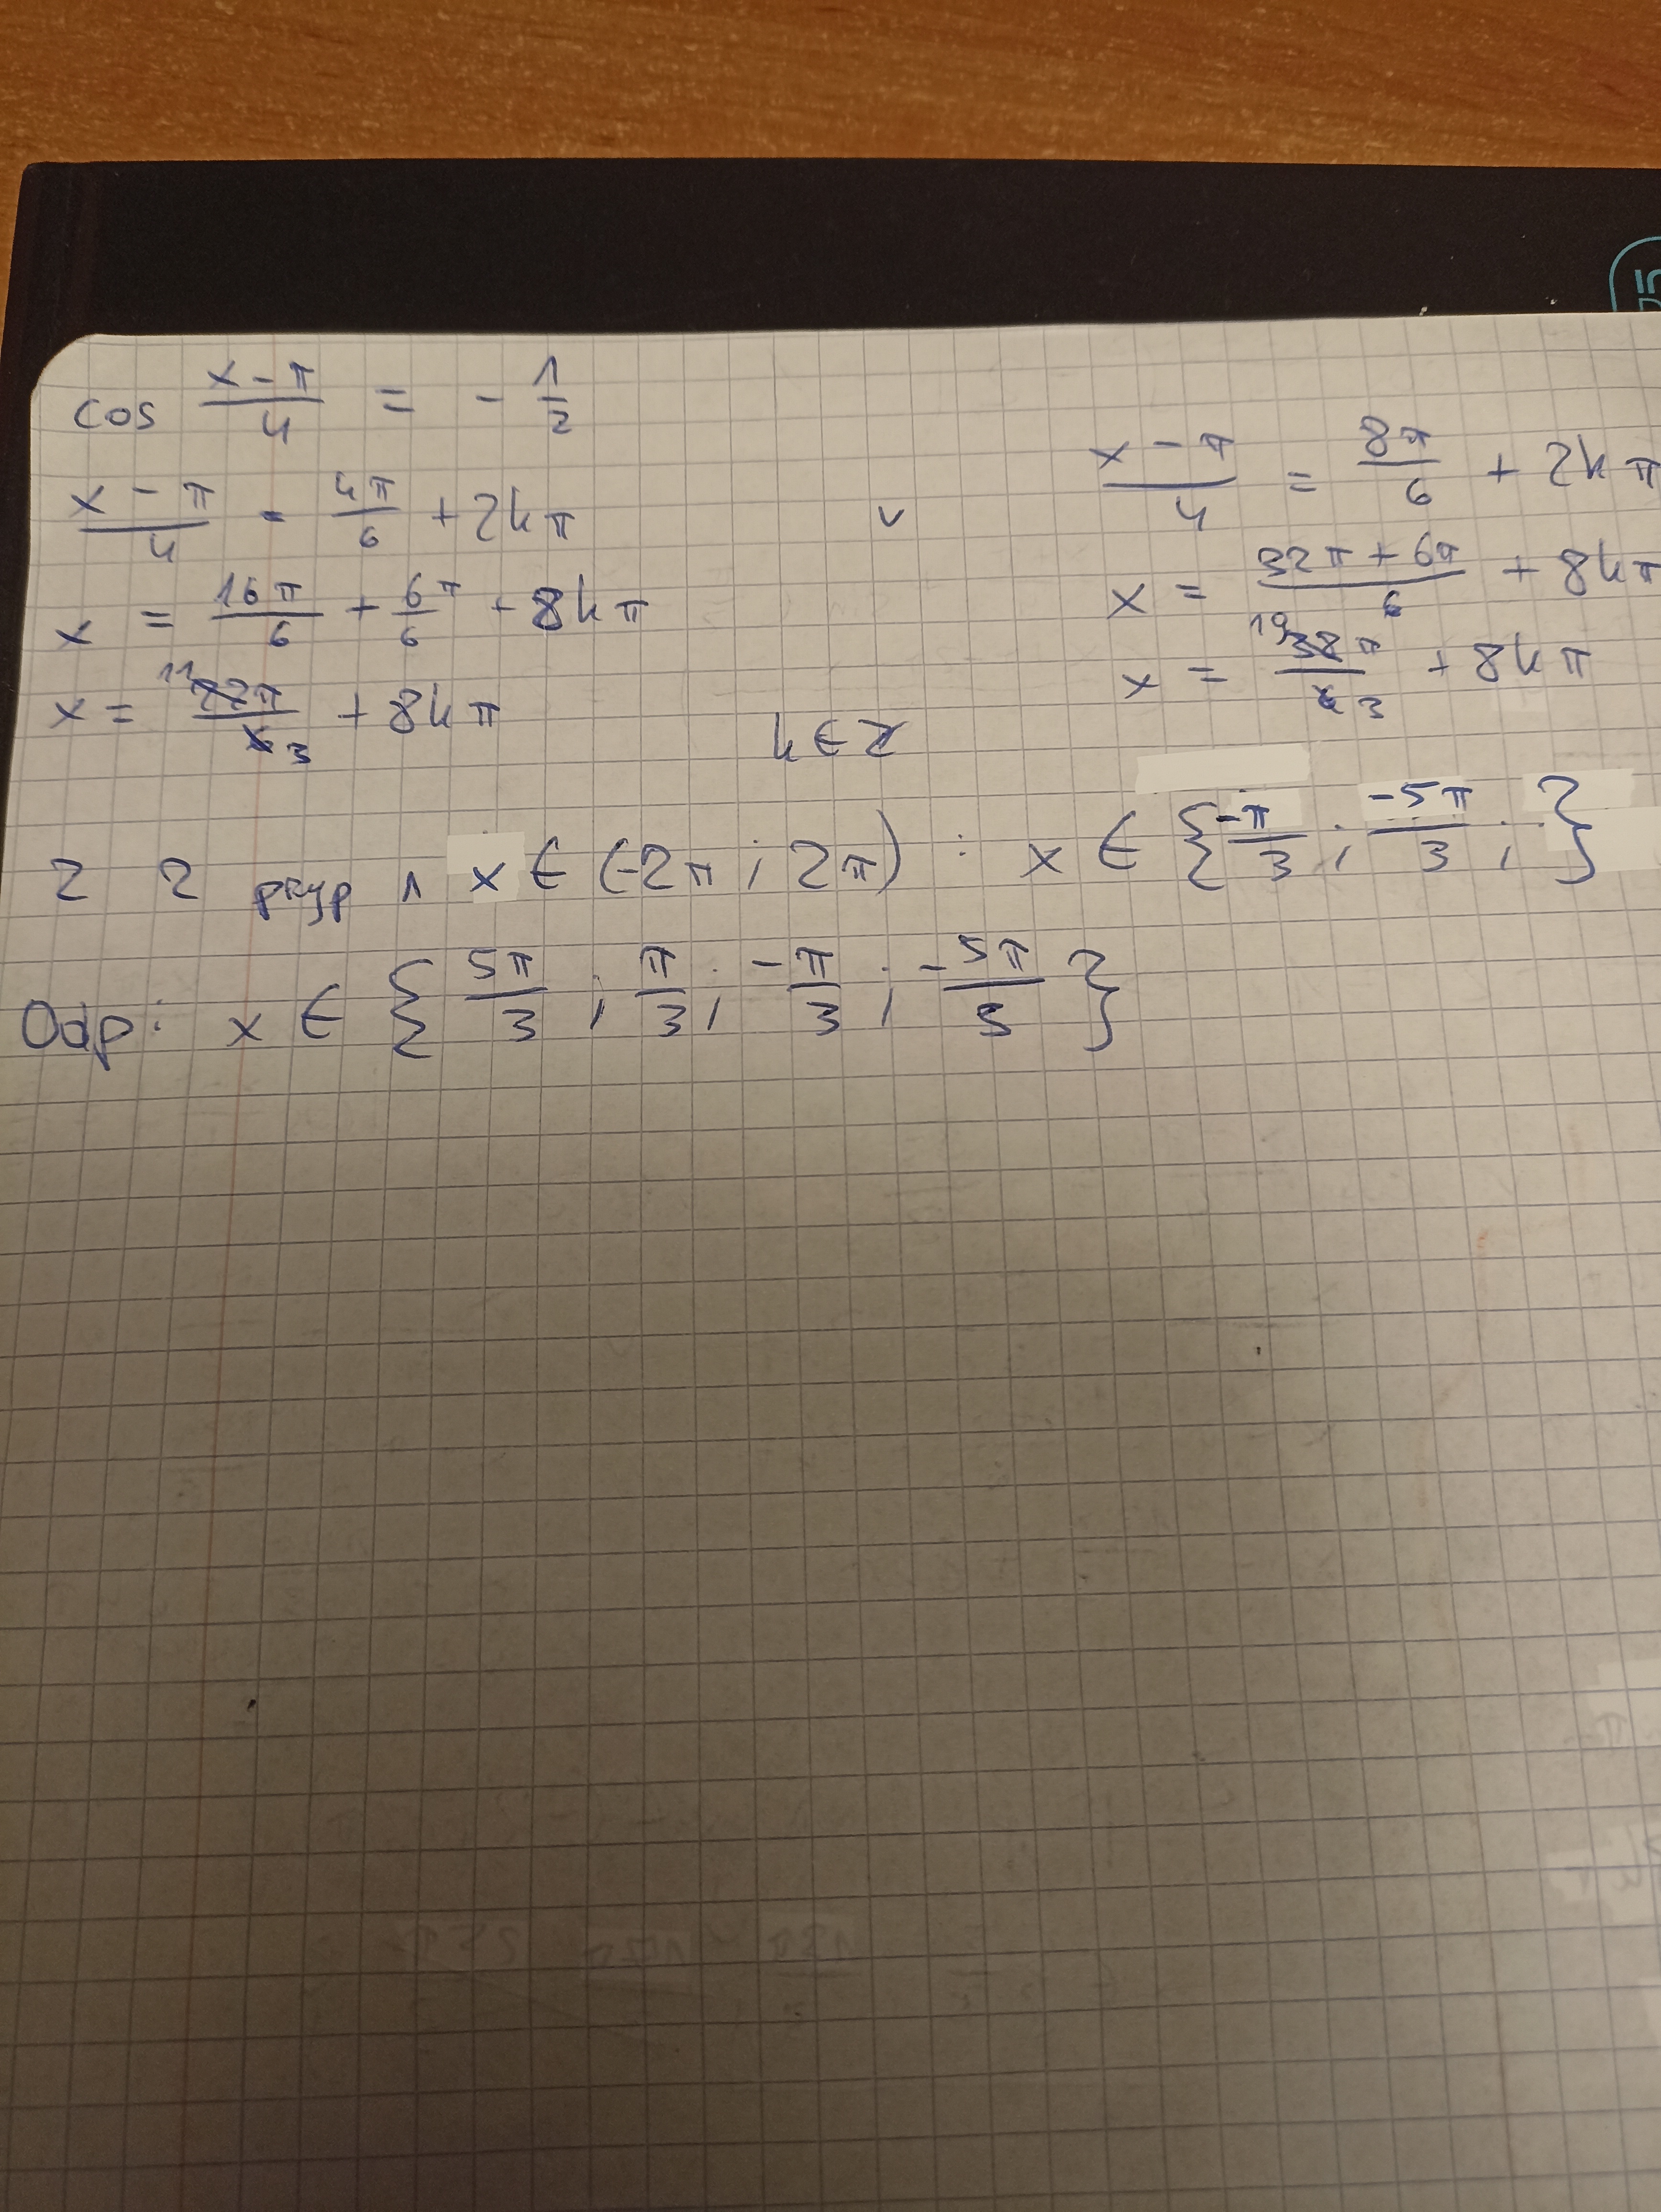 cos (x - π)/4 = - 1/2
(x - π)/4 = 4π/6 + 2kπ v (x - π)/4 = 8π/6 + 2kπ
x = 16π/6 + 6π/6 + 8kπ x = (32π + 6π)/6 + 8kπ
x = 11π/3 + 8kπ k ∈ Z x = 19π/3 + 8kπ
Z 2 przyp ∧ x ∈ (-2π ; 2π) : x ∈ { -π/3 ; -5π/3 ; }
Odp: x ∈ { 5π/3 ; π/3 ; -π/3 ; -5π/3 }